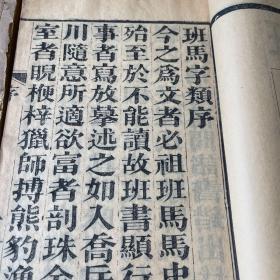 班馬字類序
今之爲文者必祖班馬馬史
殆至於不能讀故班書顯行
事者寫放摹述之如入喬兵
川隨意所適欲富者剖珠金
室者睨梗梓獵師搏熊豹漁
序